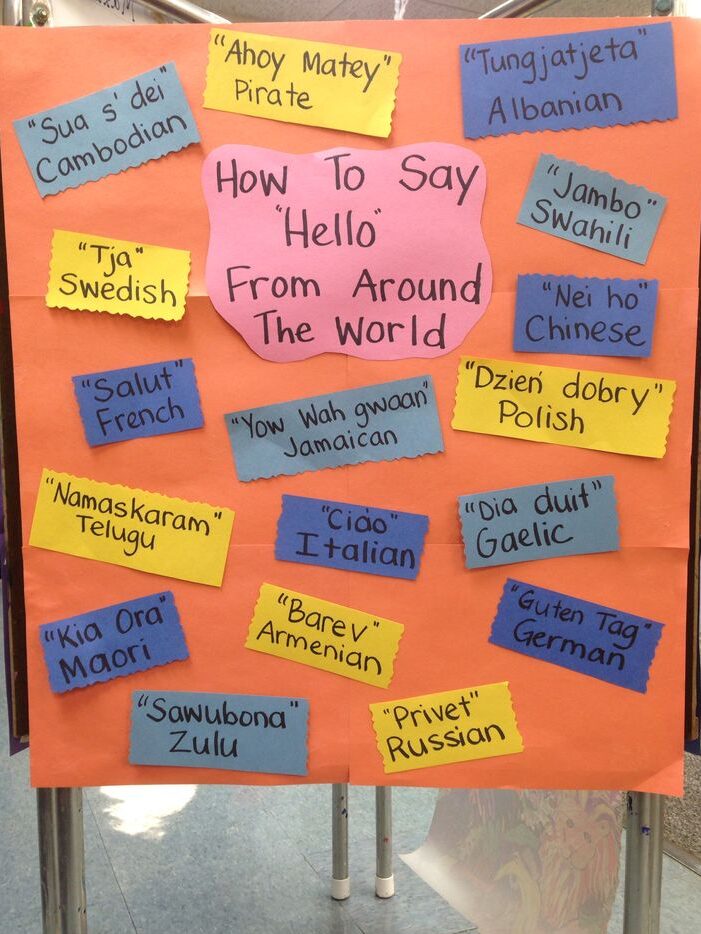 "Ahoy Matey"
Pirate
"Tungjatjeta"
Albanian
"Sua s'dei"
Cambodian
How To Say
"Hello"
From Around
The World
"Jambo"
Swahili
"Tja"
Swedish
"Nei ho"
Chinese
"Salut"
French
"Yow Wah gwaan"
Jamaican
"Dzień dobry"
Polish
"Namaskaram"
Telugu
"Ciao"
Italian
"Dia duit"
Gaelic
"Kia Ora"
Maori
"Barev"
Armenian
"Guten Tag"
German
"Sawubona"
Zulu
"Privet"
Russian